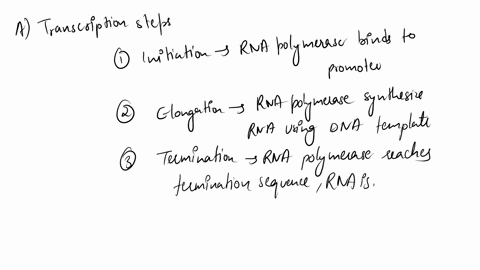 A) Transcription steps
① Initiation → RNA polymerase binds to
promoter
② Elongation → RNA polymerase synthesize
RNA using DNA template
③ Termination → RNA polymerase reaches
termination sequence, RNA is.